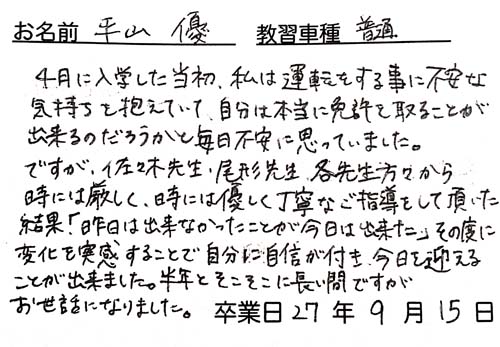 お名前 平山 優 教習車種 普通
4月に入学した当初、私は運転をする事に不安な
気持ちを抱えていて、自分は本当に免許を取ることが
出来るのだろうかと毎日不安に思っていました。
ですが、佐々木先生・尾形先生、各先生方々から
時には厳しく、時には優しく丁寧なご指導をして頂いた
結果「昨日は出来なかったことが今日は出来た」その度に
変化を実感することで自分に自信が付き、今日を迎える
ことが出来ました。半年とそこそこに長い間ですが
お世話になりました。 卒業日27年9月15日